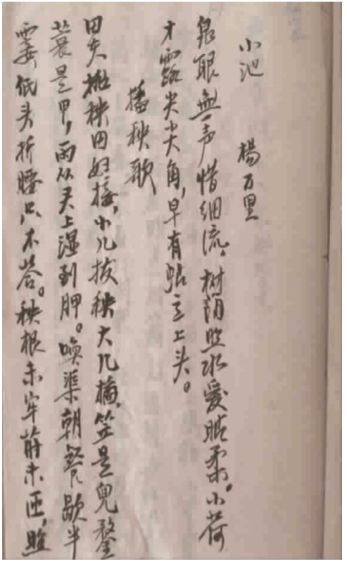 小池 楊万里
泉眼無声惜细流，树阴照水愛晴柔。小荷
才露尖尖角，早有立上头。
插秧歌
田夫抛秧田妇接，小儿拔秧大儿插，笠是兜鍪
蓑是甲，雨从天上湿到胛。喚渠朝餐歇半
霎低头折腰只不答。秧根未牢莳未匝，照